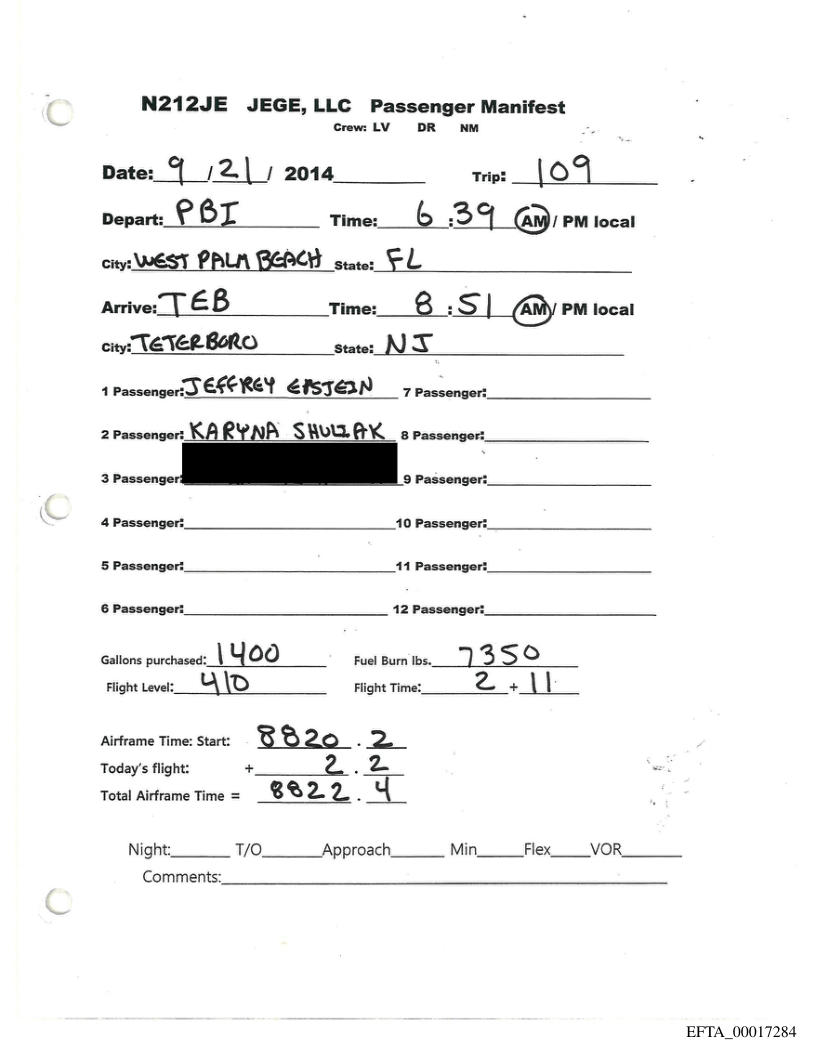 N212JE JEGE, LLC Passenger Manifest
Crew: LV DR NM
Date: 9 / 21 / 2014 Trip: 109
Depart: PBI Time: 6 : 39 AM / PM local
City: WEST PALM BEACH State: FL
Arrive: TEB Time: 8 : 51 AM / PM local
City: TETERBORO State: NJ
1 Passenger: JEFFREY EPSTEIN 7 Passenger:
2 Passenger: KARYNA SHULIAK 8 Passenger:
3 Passenger: 9 Passenger:
4 Passenger: 10 Passenger:
5 Passenger: 11 Passenger:
6 Passenger: 12 Passenger:
Gallons purchased: 1400 Fuel Burn lbs. 7350
Flight Level: 410 Flight Time: 2 + 11
Airframe Time: Start: 8820 . 2
Today's flight: + 2 . 2
Total Airframe Time = 8822 . 4
Night: T/O Approach Min Flex VOR
Comments:
EFTA_00017284